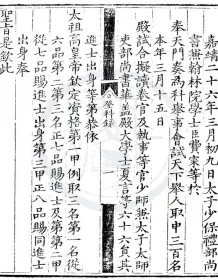 嘉靖二十六年三月初九日太子少保禮部尚
書兼翰林院學士臣費寀等於
奉天門奏為科舉事會試天下舉人取中三百名
本年三月十五日
殿試合擬讀卷官及執事等官少師兼太子太師
吏部尚書華蓋殿大學士夏言等六十六員其
進士出身等第恭依
太祖高皇帝欽定資格第一甲例取三名第一名從
六品第二第三名正七品賜進士及第第二甲
從七品賜進士出身第三甲正八品賜同進士
出身奉
聖旨是欽此
登科錄
一